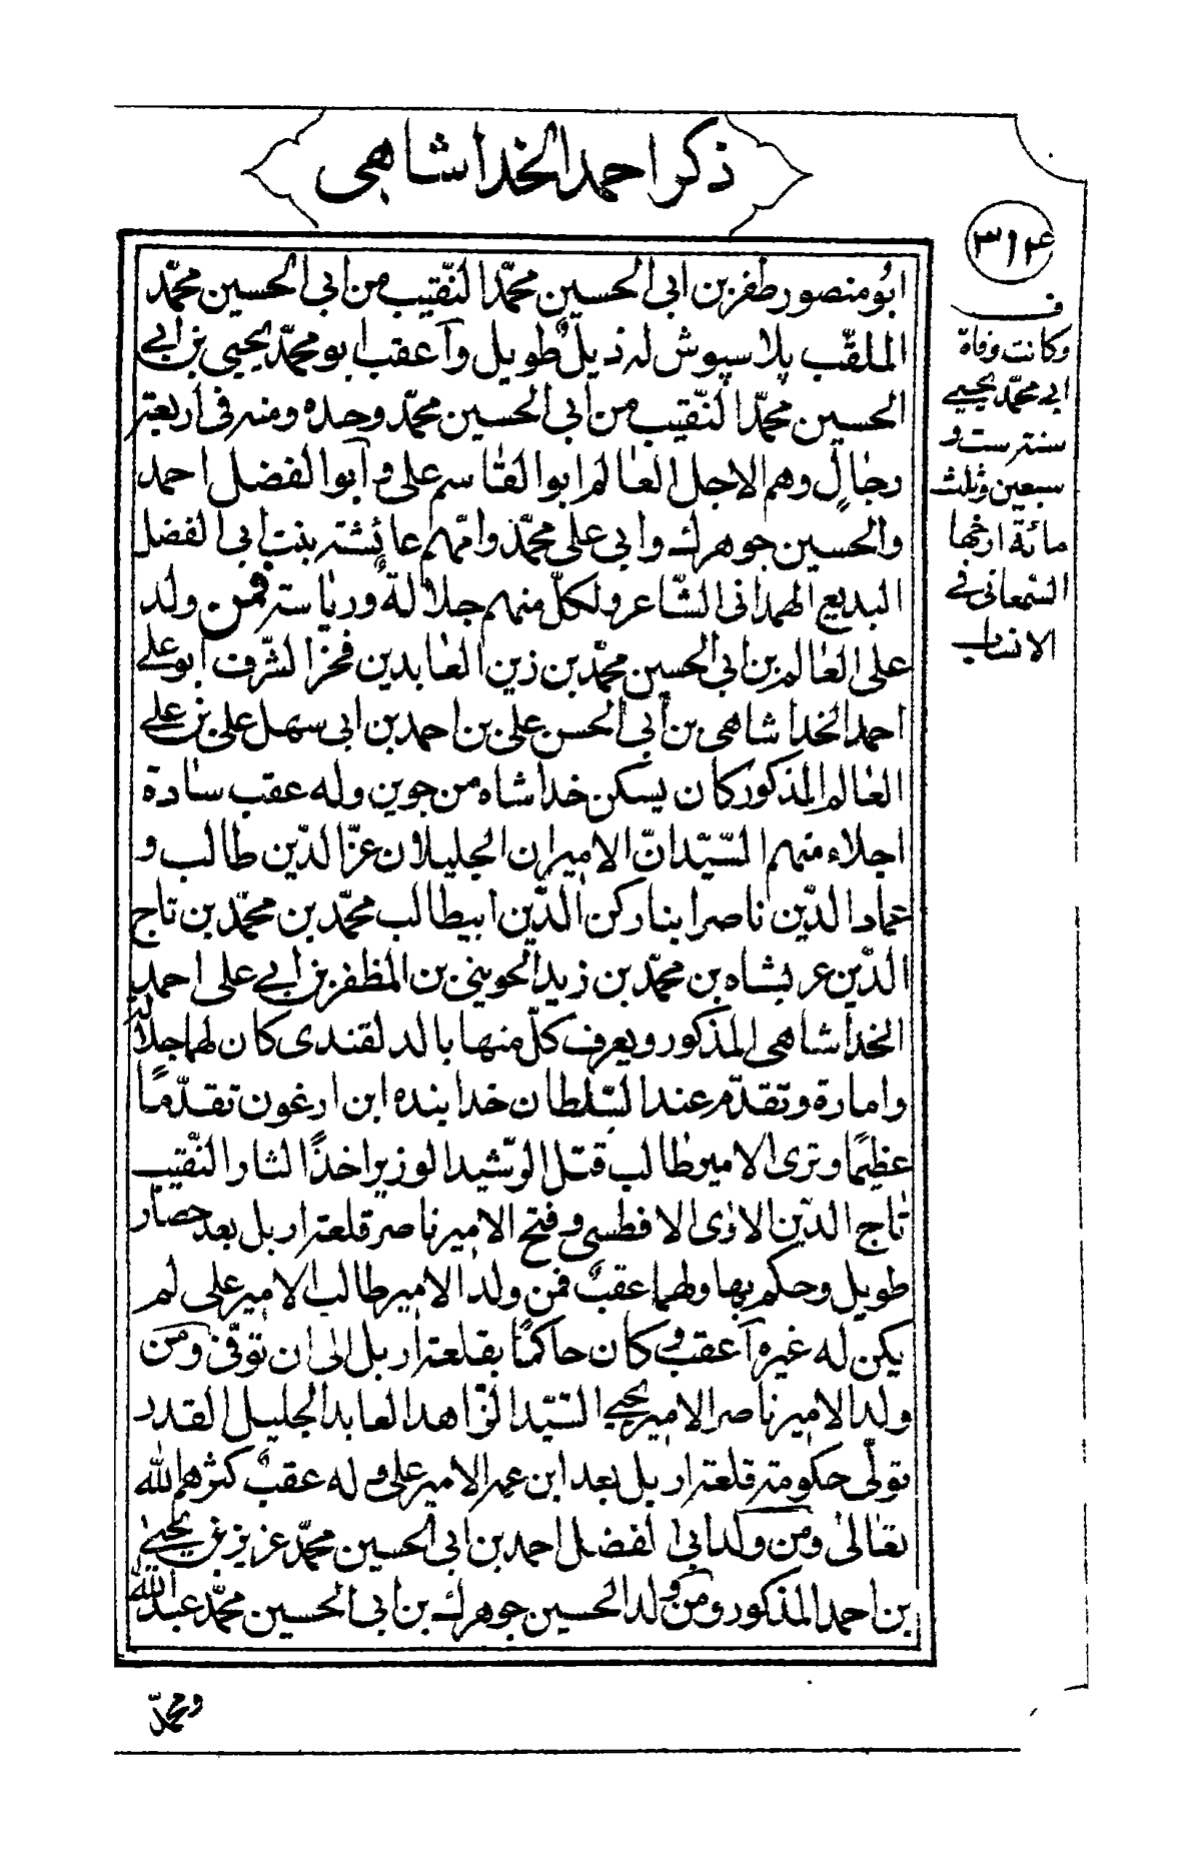 ذكر احمد الخداشاهى
٣١٤
ابو منصور ظفر بن ابى الحسين محمّد النّقيب من ابى الحسين محمّد
الملقّب پلاسپوش له ذيل طويل وآعقب ابو محمّد يحيى بن ابى
الحسين محمّد النّقيب من ابى الحسين محمّد وحده ومنه فى اربعة
رجال وهم الاجل العالم ابو القاسم على وآبو الفضل احمد
والحسين جوهرك وابى على محمّد وامّهم عائشة بنت ابى الفضل
البديع الهمدانى الشّاعر ولكلّ منهم جلالة ورياسة فمن ولد
على العالم بن ابى الحسين محمّد بن زين العابدين فخر الشّرف ابو على
احمد الخداشاهى بن ابى الحسن على بن احمد بن ابى سهل على بن على
العالم المذكور كان يسكن خداشاه من جوين وله عقب سادة
اجلاء منهم السّيّدان الاميران الجليلان عزّ الدّين طالب و
عماد الدّين ناصر ابنا ركن الدّين ابيطالب محمّد بن محمّد بن تاج
الدّين عربشاه بن محمّد بن زيد الجوينى بن المظفر بن ابى على احمد
الخداشاهى المذكور ويعرف كلّ منها بالدلقندى كان لهما جلالة
وامارة وتقدّم عند السّلطان خدا بنده ابن ارغون تقدّمًا
عظيمًا وترى الامير طالب قتل الرّشيد الوزير اخذًا الثار النّقيب
تاج الدّين الاوى الافطسى وفتح الامير ناصر قلعة اربل بعد حصار
طويل وحكم بها ولهما عقبٌ فمن ولد الامير طالب الامير على لم
يكن له غيره آعقب وكان حاكمًا بقلعة اربل الى ان توفّى ومن
ولد الامير ناصر الامير يحيى السّيّد الزّاهد العابد الجليل القدر
تولّى حكومة قلعة اربل بعد ابن عمه الامير على وله عقبٌ كثرهم الله
تعالى ومن ولد ابى الفضل احمد بن ابى الحسين محمّد عزيز بن يحيى
بن احمد المذكور ومن ولد الحسين جوهرك بن ابى الحسين محمّد عبد الله
ف
وكانت وفاة
ابى محمّد يحيى
سنة ست و
سبعين وثلث
مائة ارخها
السّمعانى فى
الانساب
ومحمّد